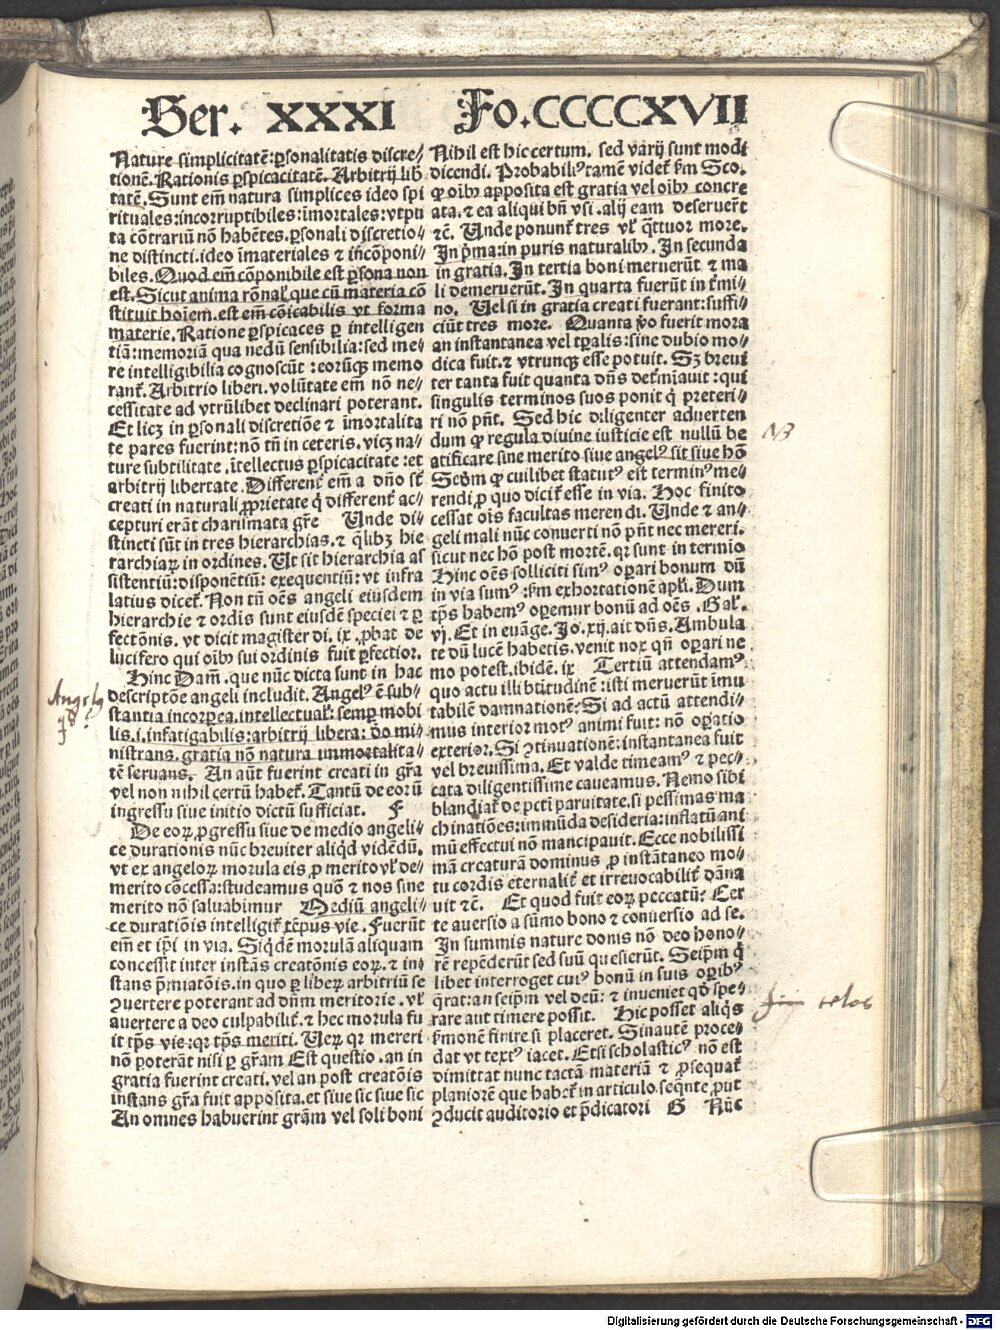 Ser. XXXI Fo. CCCCXVII
Nature simplicitatẽ: ꝑsonalitatis discre⸗
tionẽ. Rationis ꝑspicacitatẽ. Arbitrij lib
tatẽ. Sunt em̃ natura simplices ideo spi
rituales: incorruptibiles: ĩmortales: vtpu
ta cõtrariũ nõ habẽtes. ꝑsonali discretio⸗
ne distincti. ideo ĩmateriales ⁊ incõponi⸗
biles. Quod em̃ cõponibile est ꝑsona non
est. Sicut anima rõnal' que cũ materia cõ
stituit hoĩem. est em̃ cõicabilis vt forma
materie. Ratione ꝑspicaces ꝑ intelligen
tiã: memoriã qua nedũ sensibilia: sed me⸗
re intelligibilia cognoscũt: eorũqꝫ memo
rant̃. Arbitrio liberi. volũtate em̃ nõ ne⸗
cessitate ad vtrũlibet declinari poterant.
Et licꝫ in ꝑsonali discretiõe ⁊ ĩmortalita
te pares fuerint: nõ tñ in ceteris. vicꝫ na⸗
ture subtilitate. ĩtellectus ꝑspicacitate: et
arbitrij libertate. Differenť em̃ a dño sť
creati in naturali ꝓprietate q̃ differenť ac⸗
cepturi erãt charismata gr̃e Unde di⸗
stincti sũt in tres hierarchias. ⁊ q̃libꝫ hie
rarchiaꝝ in ordines. Ut sit hierarchia as
sistentiũ: disponẽtiũ: exequentiũ: vt infra
latius diceť. Non tñ oẽs angeli eiusdem
hierarchie ⁊ ordis sunt eiusdẽ speciei ⁊ ꝑ
fectõnis. vt dicit magister di. ix. ꝓbat de
lucifero qui oĩbꝰ sui ordinis fuit ꝑfectior.
Hinc Dam̃. que nũc dicta sunt in hac
descriptõe angeli includit. Angelꝰ ẽ sub⸗
stantia incorꝑea. intellectual': semꝑ mobi
lis. i. infatigabilis: arbitrij libera: deo mi⸗
nistrans. gratia nõ natura immortalita⸗
tẽ seruans. An aũt fuerint creati in gr̃a
vel non nihil certũ habeť. Tantũ de eorũ
ingressu siue initio dictũ sufficiat. F
De eoꝝ ꝓgressu siue de medio angeli⸗
ce durationis nũc breuiter aliq̃d vidẽdũ.
vt ex angeloꝝ morula eis ꝓ merito vl' de⸗
merito cõcessa: studeamus quõ ⁊ nos sine
merito nõ saluabimur Mediũ angeli⸗
ce duratiõis intelligiť tẽpus vie. Fuerũt
em̃ et ip̃i in via. Siq̃dẽ morulã aliquam
concessit inter instãs creatõnis eoꝝ. ⁊ in⸗
stans p̃miatõis. in quo ꝑ liberꝝ arbitriũ se
ꝯuertere poterant ad dñm meritorie. vl'
auertere a deo culpabiliť. ⁊ hec morula fu
it tp̃s vie: qꝛ tp̃s meriti. Ueꝝ qꝛ mereri
nõ poterãt nisi ꝑ gr̃am Est questio. an in
gratia fuerint creati. vel an post creatõis
instans gr̃a fuit apposita. et siue sic siue sic
An omnes habuerint gr̃am vel soli boni
Nihil est hic certum. sed varij sunt modi
dicendi. Probabiliꝰ tamẽ videť ẜm Sco.
ꝙ oĩbꝰ apposita est gratia vel oĩbꝰ concre
ata. ⁊ ea aliqui bñ vsi. alij eam deseruerũt
⁊c̃. Unde ponunť tres vl' q̃ttuor more.
In p̃ma: in puris naturalibꝰ. In secunda
in gratia. In tertia boni meruerũt ⁊ ma
li demeruerũt. In quarta fuerũt in ťmi⸗
no. Uel si in gratia creati fuerant: suffi⸗
ciũt tres more. Quanta ꝟo fuerit mora
an instantanea vel tꝑalis: sine dubio mo⸗
dica fuit. ⁊ vtrunqꝫ esse potuit. Sꝫ breui
ter tanta fuit quanta dñs deťmĩauit: qui
singulis terminos suos ponit q̃ preteri⸗
ri nõ pñt. Sed hic diligenter aduerten
dum ꝙ regula diuine iusticie est nullũ be
atificare sine merito siue angelꝰ sit siue hõ
Scdm̃ ꝙ cuilibet statutꝰ est terminꝰ me⸗
rendi ꝓ quo diciť esse in via. Hoc finito
cessat oĩs facultas merendi. Unde ⁊ an⸗
geli mali nũc conuerti nõ pñt nec mereri.
sicut nec hõ post mortẽ. qꝛ sunt in termĩo
Hinc oẽs solliciti simꝰ oꝑari bonum dũ
in via sumꝰ: ẜm exhortationẽ apl'i. Dum
tp̃s habemꝰ oꝑemur bonũ ad oẽs. Gal'.
vj. Et in euãge. Jo. xij. ait dñs. Ambula
te dũ lucẽ habetis. venit nox qñ oꝑari ne
mo potest. ibidẽ. ix Tertiũ attendamꝰ
quo actu illi btĩtudinẽ: isti meruerũt ĩmu
tabilẽ damnationẽ? Si ad actũ attendi⸗
mus interior motꝰ animi fuit: nõ oꝑatio
exterior. Si ꝯtinuationẽ: instantanea fuit
vel breuissima. Et valde timeamꝰ ⁊ pec⸗
cata diligentissime caueamus. Nemo sibi
blandiať de pcti paruitate. si pessimas ma
chinatiões: immũda desideria: inflatũ ani
mũ effectui nõ mancipauit. Ecce nobilissi
mã creaturã dominus ꝓ instãtaneo mo⸗
tu cordis eternaliť et irreuocabiliť dãna
uit ⁊c̃. Et quod fuit eoꝝ peccatũ? Cer
te auersio a sũmo bono ⁊ conuersio ad se.
In summis nature donis nõ deo hono⸗
rẽ repẽderũt sed suũ quesierũt. Seip̃m q̃
libet interroget cuiꝰ bonũ in suis oꝑibꝰ
q̃rat: an seip̃m vel deũ: ⁊ inueniet qd̃ spe⸗
rare aut timere possit. Hic posset aliq̃s
ẜmonẽ finire si placeret. Sinautẽ proce⸗
dat vt textꝰ iacet. Etsi scholasticꝰ nõ est
dimittat nunc tactã materiã ⁊ ꝓsequať
planiorẽ que habeť in articulo seq̃nte ꝓut
ꝯducit auditorio et p̃dicatori G Nũc
NB
Digitalisierung gefördert durch die Deutsche Forschungsgemeinschaft - DFG